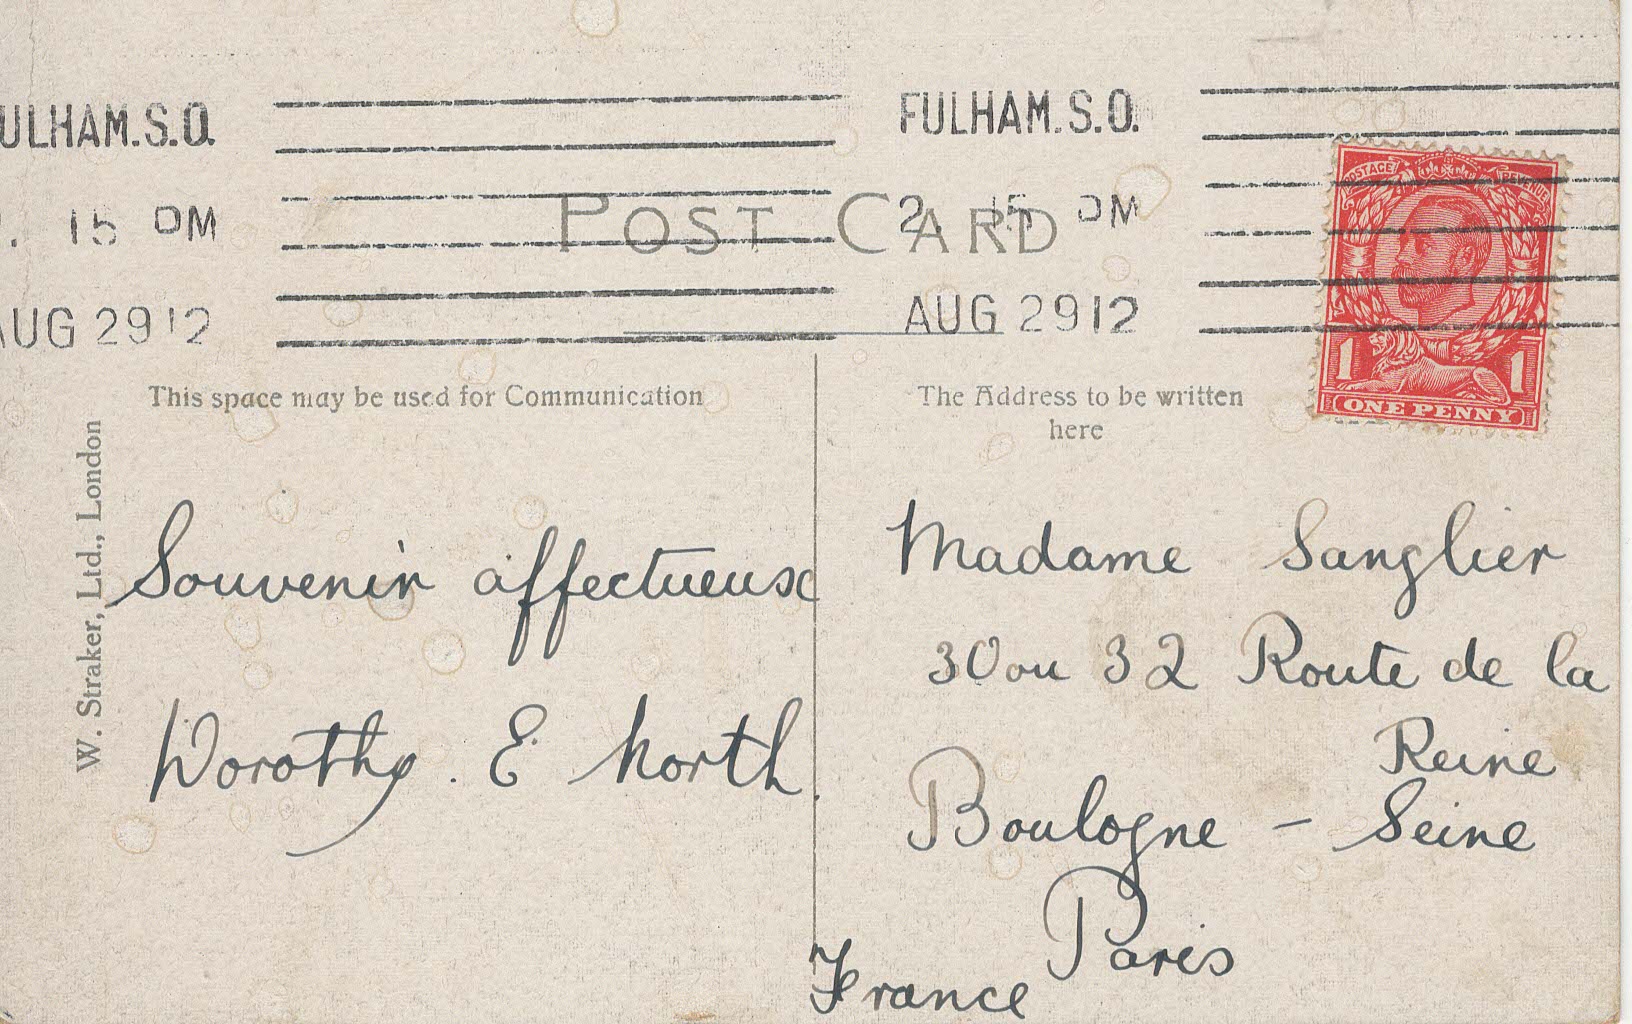 ULHAM.S.O.
15 PM
AUG 29 12
FULHAM.S.O.
2. 15 PM
AUG 29 12
POST CARD
POSTAGE REVENUE
1 1
ONE PENNY
This space may be used for Communication
The Address to be written
here
W. Straker, Ltd., London
Souvenir affectueuse
Dorothy. E North.
Madame Sanglier
30 ou 32 Route de la
Reine
Boulogne - Seine
Paris
France